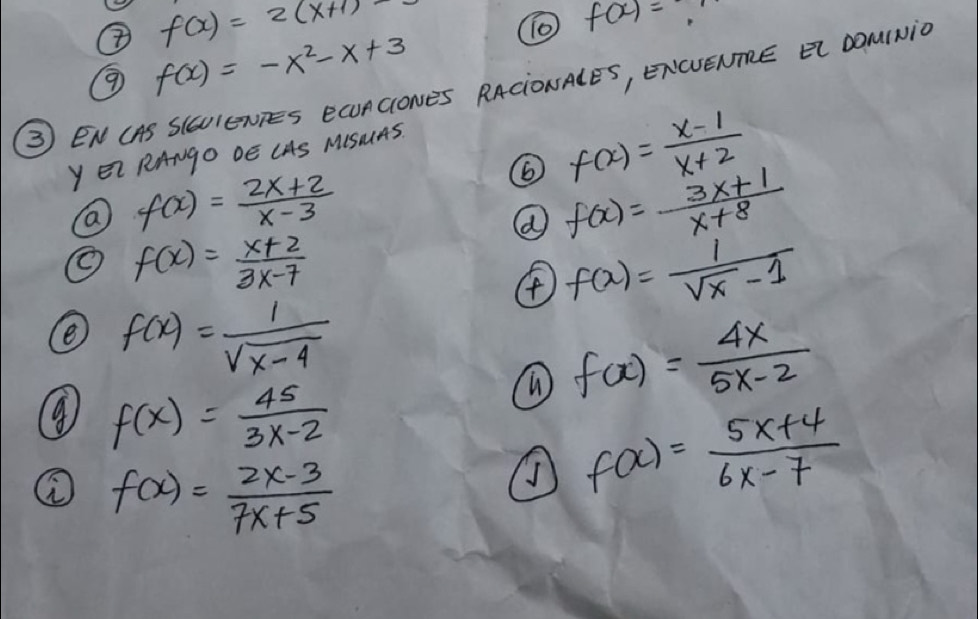 ⑦ f(x) = 2(x+1)
⑩ f(x) =
⑨ f(x) = -x²-x+3
③ EN LAS SIGUIENTES ECUACIONES RACIONALES, ENCUENTRE EL DOMINIO
Y EL RANGO DE LAS MISMAS.
ⓐ f(x) = (2x+2)/(x-3)
ⓑ f(x) = (x-1)/(x+2)
ⓒ f(x) = (x+2)/(3x-7)
ⓓ f(x) = (3x+1)/(x+8)
ⓔ f(x) = 1/√(x-4)
ⓕ f(x) = 1/(√x - 1)
ⓖ f(x) = 45/(3x-2)
ⓗ f(x) = 4x/(5x-2)
ⓘ f(x) = (2x-3)/(7x+5)
ⓙ f(x) = (5x+4)/(6x-7)